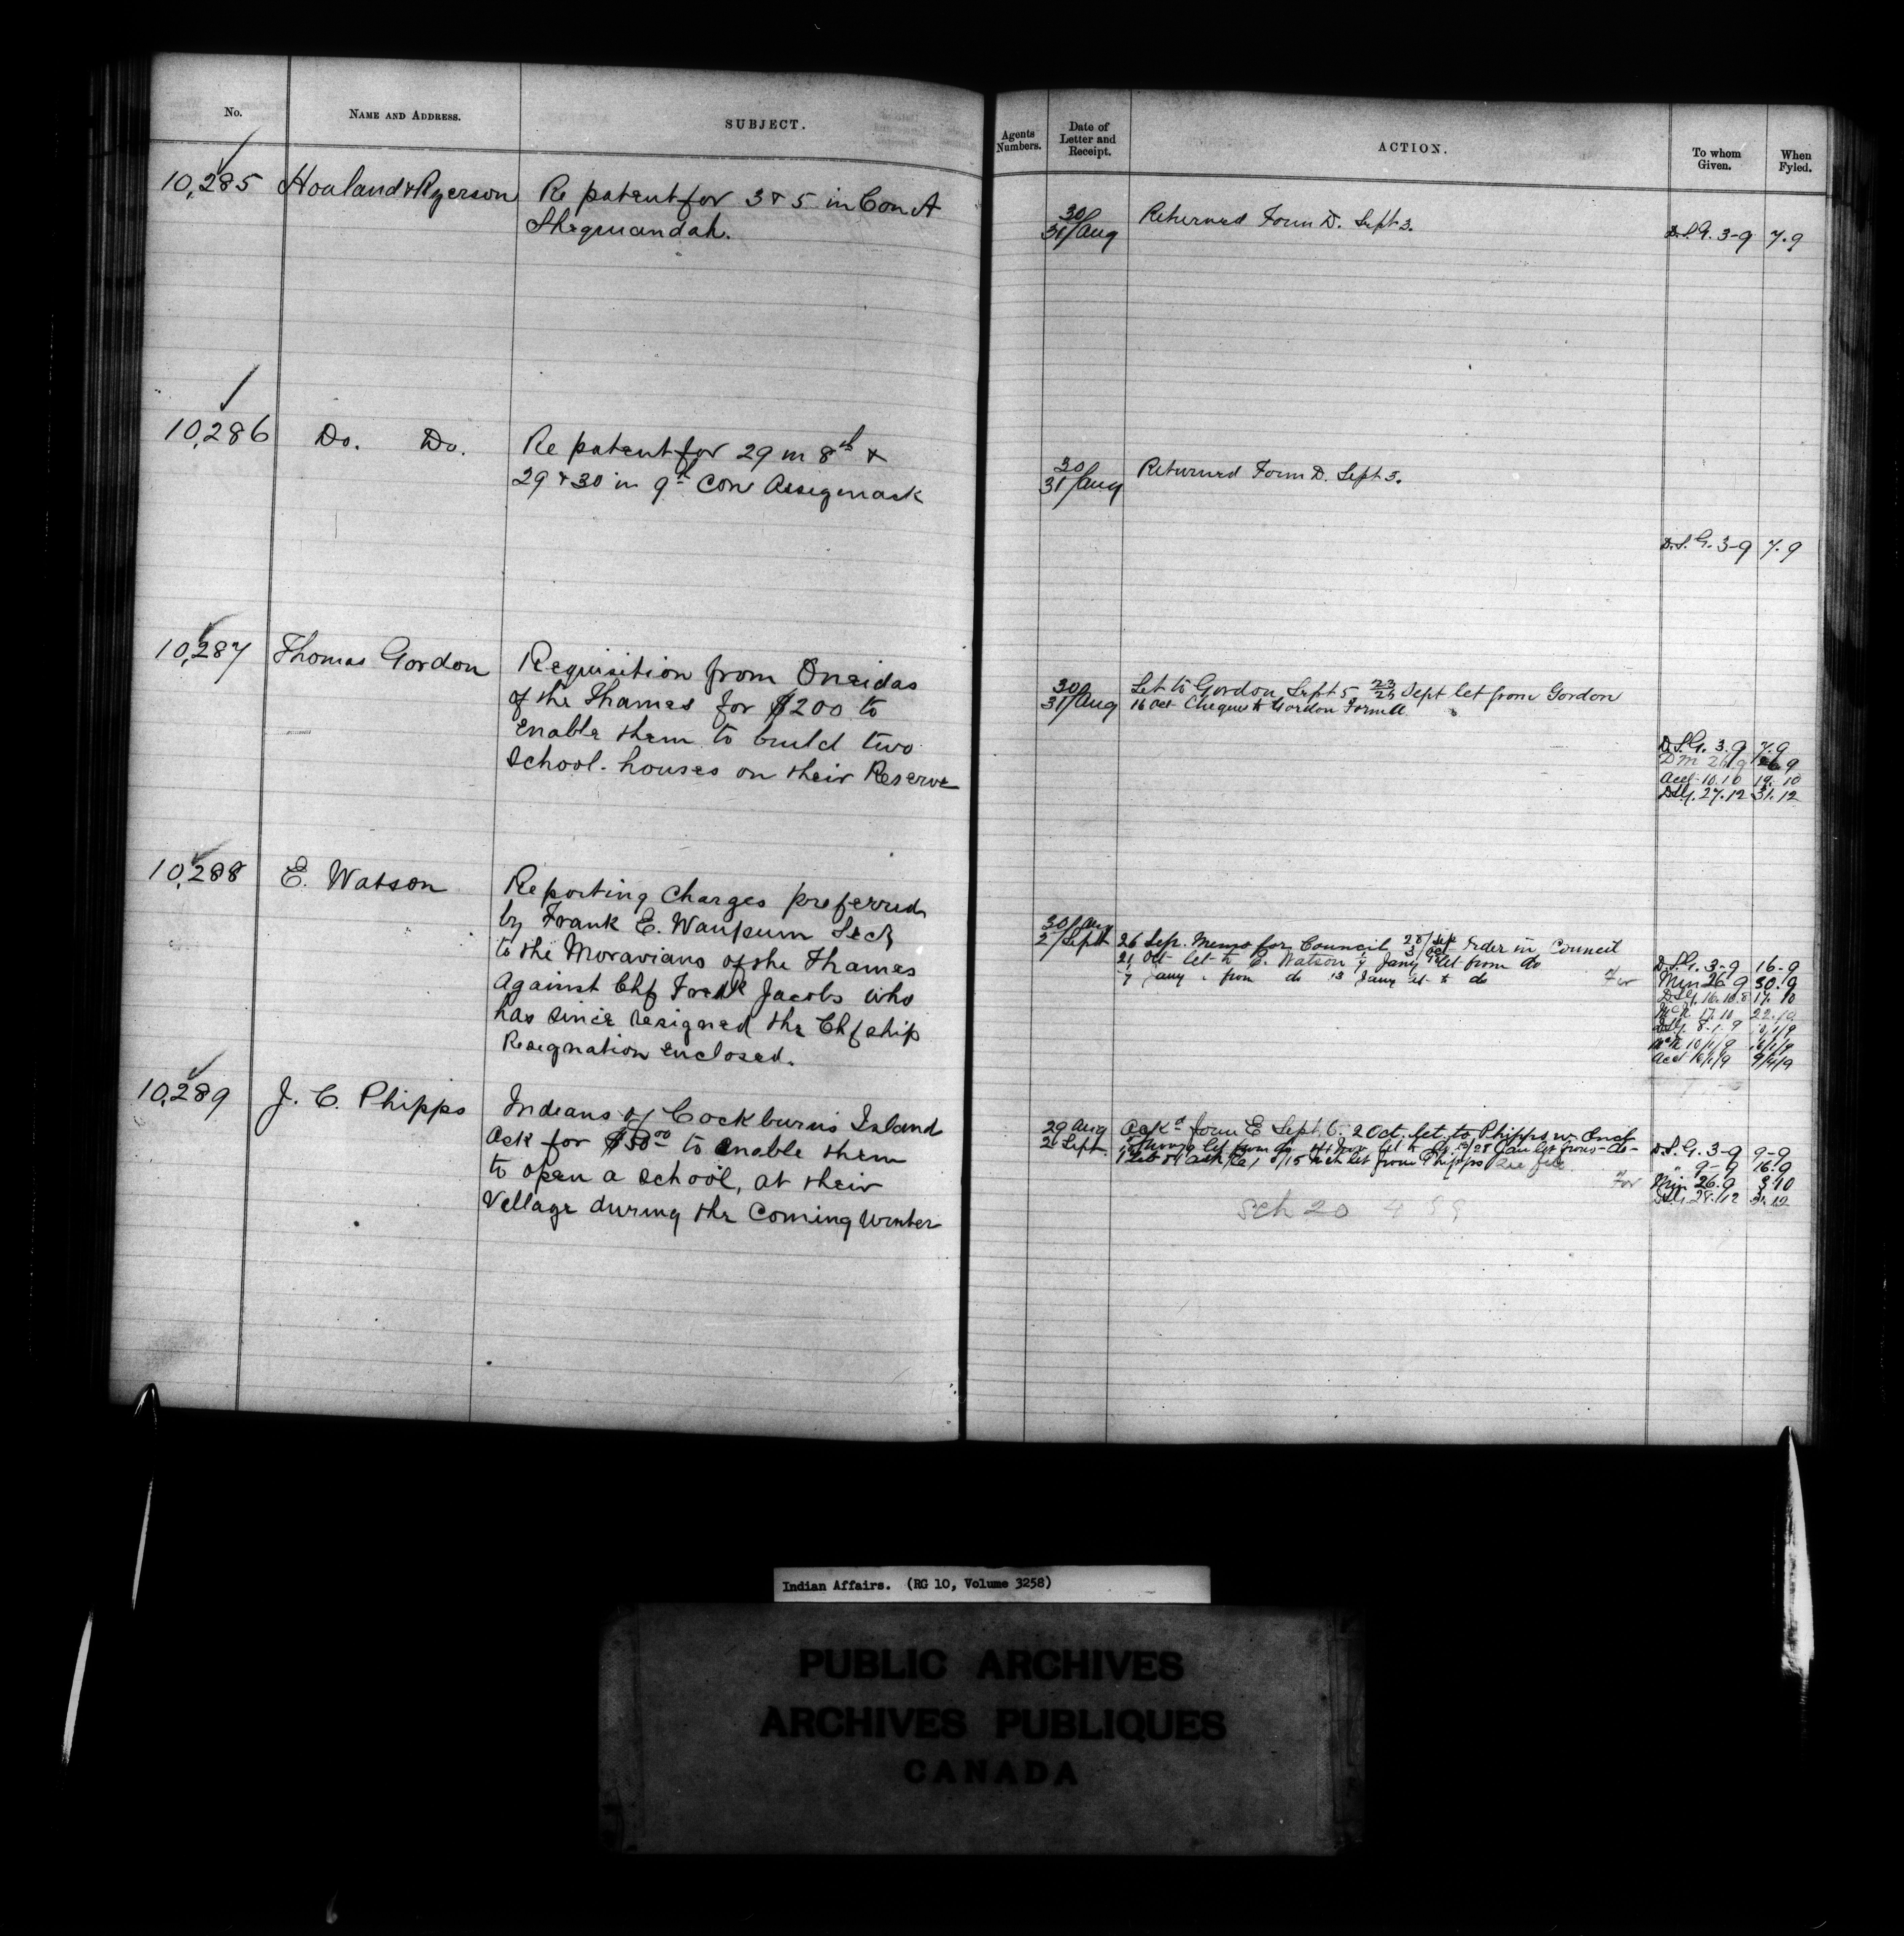 No.
NAME AND ADDRESS.
SUBJECT.
Agents Numbers.
Date of Letter and Receipt.
ACTION.
To whom Given.
When Fyled.
10,285
Hoaland & Ryerson
Re patent for 3 & 5 in Con A
Shequandah.
30/
31/Aug
Returned Form D. Sept 3.
D.S.G. 3-9 7.9
10,286
Do. Do.
Re patent for 29 in 8th &
29 & 30 in 9th Con Assigenack
30/
31/Aug
Returned Form D. Sept 3.
D.S.G. 3-9 7.9
10,287
Thomas Gordon
Requisition from Oneidas
of the Thames for $200 to
enable them to build two
School-houses on their Reserve
30/
31/Aug
Let to Gordon Sept 5 23/26 Sept let from Gordon
16 Oct Cheque to Gordon Form A.
D.S.G. 3.9 7.9
Acct 10.10 19.10
D.S.G. 27.12 31.12
10,288
E. Watson
Reporting Charges preferred
by Frank E. Waupum Secy
to the Moravians of the Thames
Against Chf Fredk Jacobs who
has since resigned the Chfship
Resignation enclosed.
30/Aug
2/Sept
26 Sep. Memo for Council 28/Sep 3/Oct Order in Council
21 Oct let to E. Watson 7 Jany let from do
7 Jany from do 13 Jany let to do
For
D.S.G. 3-9 16-9
Min 26.9 30.9
D.S.G. 16.10 17.10
McK 17.10 22.10
D.S.G. 8.1.9
McK 10/1/9
Acct 9/4/9
10,289
J. C. Phipps
Indians of Cockburns Island
Ask for $50.00 to enable them
to open a School, at their
Village during the Coming Winter
29 Aug
2 Sept
Ackd Form E Sept. 6. 2 Oct. let. to Phipps w. Encl
let from Phipps See file
For
D.S.G. 3-9 9-9
" 9-9 16.9
Min 26.9 3.10
D.S.G. 28.12 31.12
Sch 20 4
Indian Affairs. (RG 10, Volume 3258)
PUBLIC ARCHIVES
ARCHIVES PUBLIQUES
CANADA